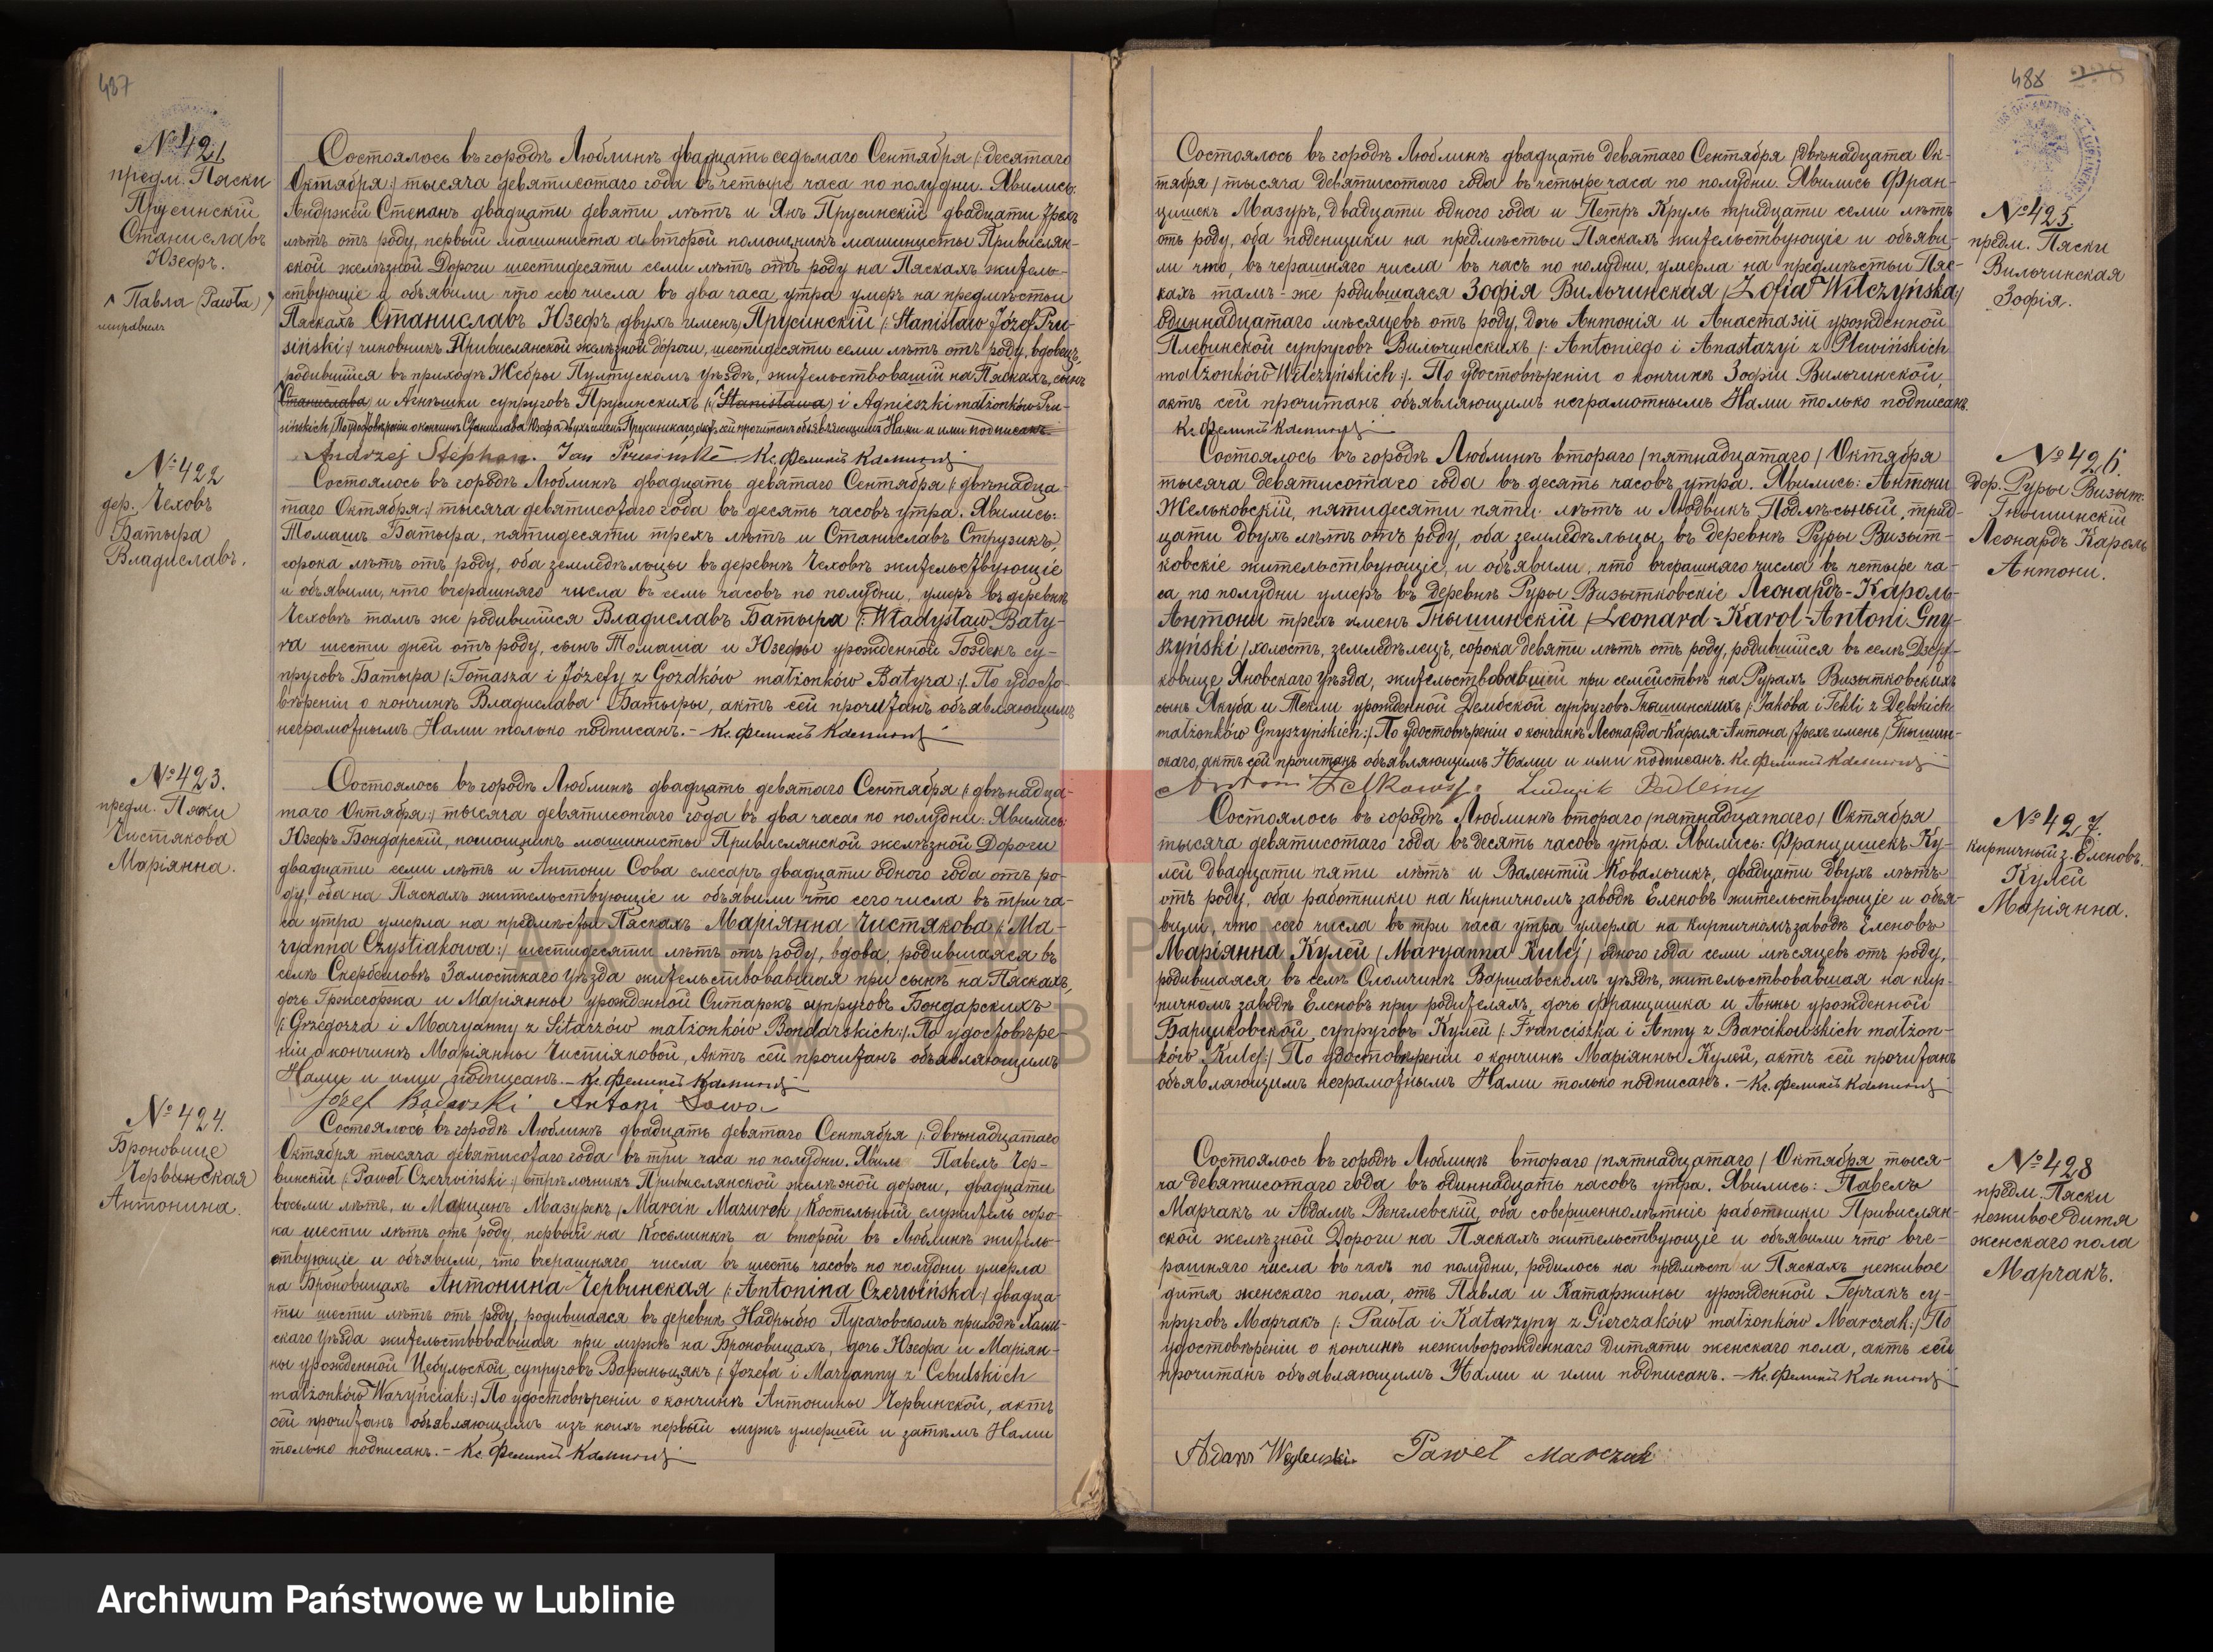 487
№ 421
предм. Пяски
Прусинскій
Станиславъ
Юзефъ.
Павла (Pawła)
Состоялось въ городѣ Люблинѣ двадцать седьмаго Сентября /: десятаго
Октября :/ тысяча девятисотаго года въ четыре часа по полудни. Явились:
Андржей Степанъ двадцати девяти лѣтъ и Янъ Прусинскій двадцати трехъ
лѣтъ отъ роду, первый машиниста а второй помощникъ машинисты Привислян-
ской желѣзной Дороги шестидесяти семи лѣтъ отъ роду на Пяскахъ житель-
ствующіе и объявили что сего числа въ два часа утра умеръ на предмѣстьи
Пяскахъ Станиславъ Юзефъ двухъ именъ Прусинскій /: Stanisław Józef Pru-
siński :/ чиновникъ Привислянской желѣзной дороги, шестидесяти семи лѣтъ отъ роду, вдовецъ,
родившійся въ приходѣ Жебры Пултускомъ уѣздѣ, жительствовавшій на Пяскахъ, сынъ
Станислава и Агнѣшки супруговъ Прусинскихъ /: Stanisława i Agnieszki małżonków Pru-
sińskich /. По удостовѣреніи о кончинѣ Станислава Юзефа двухъ именъ Прусинскаго, актъ сей прочитанъ объявляющимъ Нами и ими подписанъ.
Andrzej Stephan. Jan Prusinski Кс. Феликсъ
№ 422
дер. Чеховъ
Батыра
Владиславъ.
Состоялось въ городѣ Люблинѣ двадцать девятаго Сентября /: двѣнадца-
таго Октября :/ тысяча девятисотаго года въ десять часовъ утра. Явились:
Томашъ Батыра, пятидесяти трехъ лѣтъ и Станиславъ Струзикъ,
сорока лѣтъ отъ роду, оба земледѣльцы въ деревнѣ Чеховѣ жительствующіе
и объявили, что вчерашняго числа въ семь часовъ по полудни, умеръ въ деревнѣ
Чеховѣ тамъ же родившійся Владиславъ Батыра /: Władysław Baty-
ra шести дней отъ роду, сынъ Томаша и Юзефы урожденной Гоздекъ су-
пруговъ Батыра /: Tomasza i Józefy z Gozdków małżonków Batyra :/. По удосто-
вѣреніи о кончинѣ Владислава Батыры, актъ сей прочитанъ объявляющимъ
неграмотнымъ Нами только подписанъ. - Кс. Феликсъ
№ 423.
предм. Пяски
Чистякова
Маріянна.
Состоялось въ городѣ Люблинѣ двадцать девятаго Сентября /: двѣнадца-
таго Октября :/ тысяча девятисотаго года въ два часа по полудни. Явились:
Юзефъ Бондарскій, помощникъ машинисты Привислянской желѣзной Дороги
двадцати семи лѣтъ и Антони Сова слесарь двадцати одного года отъ ро-
ду, оба на Пяскахъ жительствующіе и объявили что сего числа въ три ча-
са утра умерла на предмѣстьи Пяскахъ Маріянна Чистякова /: Ma-
ryanna Czystiakowa :/ шестидесяти лѣтъ отъ роду, вдова, родившаяся въ
селѣ Скербешовѣ Замостскаго уѣзда жительствовавшая при сынѣ на Пяскахъ,
дочь Гржегоржа и Маріянны урожденной Ситаржъ супруговъ Бондарскихъ
/: Grzegorza i Maryanny z Sitarzów małżonków Bondarskich :/. По удостовѣре-
ніи о кончинѣ Маріянны Чистяковой, Актъ сей прочитанъ объявляющимъ
Нами и ими подписанъ. - Кс. Феликсъ
Józef Badarski Antoni Sowa
№ 424.
Броновице
Червинская
Антонина.
Состоялось въ городѣ Люблинѣ двадцать девятаго Сентября /: двѣнадцатаго
Октября тысяча девятисотаго года въ три часа по полудни. Явили Павелъ Чер-
винскій /: Paweł Czerwiński :/ стрѣлочникъ Привислянской желѣзной дороги, двадцати
восьми лѣтъ, и Марцинъ Мазурекъ /Marcin Mazurek/ Костельный служитель соро-
ка шести лѣтъ отъ роду, первый на Косьминкѣ а второй въ Люблинѣ житель-
ствующіе и объявили, что вчерашняго числа въ шесть часовъ по полудни умерла
на Броновицахъ Антонина Червинская /: Antonina Czerwińska :/ двадца-
ти шести лѣтъ отъ роду, родившаяся въ деревнѣ Надрыбю Пугачовскомъ приходѣ Холм-
скаго уѣзда жительствовавшая при мужѣ на Броновицахъ, дочь Юзефа и Маріян-
ны урожденной Цебульской супруговъ Варыньцякъ /: Józefa i Maryanny z Cebulskich
małżonków Waryńciak :/ По удостовѣреніи о кончинѣ Антонины Червинской, актъ
сей прочитанъ объявляющимъ изъ коихъ первый мужъ умершей и затѣмъ Нами
только подписанъ. - Кс. Феликсъ
488
Состоялось въ городѣ Люблинѣ двадцать девятаго Сентября /двѣнадцата Ок-
тября / тысяча девятисотаго года въ четыре часа по полудни. Явились Фран-
цишекъ Мазуръ, двадцати одного года и Петръ Круль тридцати семи лѣтъ
отъ роду, оба поденщики на предмѣстьи Пяскахъ жительствующіе и объяви-
ли что, вчерашняго числа въ часъ по полудни, умерла на предмѣстьи Пяс-
кахъ тамъ-же родившаяся Зофія Вильчинская /Zofia Wilczyńska/
одиннадцатаго мѣсяцевъ отъ роду, дочь Антонія и Анастазіи урожденной
Плевинской супруговъ Вильчинскихъ /: Antoniego i Anastazyi z Plewińskich
małżonków Wilczyńskich :/. По удостовѣреніи о кончинѣ Зофіи Вильчинской,
актъ сей прочитанъ объявляющимъ неграмотнымъ Нами только подписанъ.
Кс. Феликсъ
№ 425.
предм. Пяски
Вильчинская
Зофія.
Состоялось въ городѣ Люблинѣ втораго /пятнадцатаго/ Октября
тысяча девятисотаго года въ десять часовъ утра. Явились: Антони
Жельковскій, пятидесяти пяти лѣтъ и Людвикъ Подлѣсьный, трид-
цати двухъ лѣтъ отъ роду, оба земледѣльцы, въ деревнѣ Руры Визыт-
ковскіе жительствующіе, и объявили, что вчерашняго числа въ четыре ча-
са, по полудни умеръ въ деревнѣ Руры Визытковскіе Леонардъ-Кароль-
Антони трехъ именъ Гнышинскій /Leonard-Karol-Antoni Gny-
szyński / холостъ, земледѣлецъ, сорока девяти лѣтъ отъ роду, родившійся въ селѣ Дзер-
ковице Яновскаго уѣзда, жительствовавшій при семействѣ на Рурахъ Визытковскихъ
сынъ Якуба и Текли урожденной Дембской супруговъ Гнышинскихъ /: Jakóba i Tekli z Dębskich
małżonków Gnyszyńskich :/ По удостовѣреніи о кончинѣ Леонарда-Кароля-Антона /трехъ именъ/ Гнышин-
скаго, актъ сей прочитанъ объявляющимъ Нами и ими подписанъ. Кс. Феликсъ
Antoni Ludwik Podleśny
№ 426.
дер. Руры Визыт.
Гнышинскій
Леонардъ Кароль
Антони.
Состоялось въ городѣ Люблинѣ втораго /пятнадцатаго/ Октября
тысяча девятисотаго года въ десять часовъ утра. Явились: Францишекъ Ку-
лей двадцати пяти лѣтъ и Валентій Ковальчикъ, двадцати двухъ лѣтъ
отъ роду, оба работники на кирпичномъ заводѣ Еленовъ жительствующіе и объя-
вили, что сего числа въ три часа утра умерла на кирпичномъ заводѣ Еленовъ
Маріянна Кулей /Maryanna Kulej/ одного года семи мѣсяцевъ отъ роду,
родившаяся въ селѣ Сломчинѣ Варшавскомъ уѣздѣ, жительствовавшая на кир-
пичномъ заводѣ Еленовъ при родителяхъ, дочь Францишка и Анны урожденной
Барциковской, супруговъ Кулей /: Franciszka i Anny z Barcikowskich małżon-
ków Kulej :/ По удостовѣреніи о кончинѣ Маріянны Кулей, актъ сей прочитанъ
объявляющимъ неграмотнымъ Нами только подписанъ. - Кс. Феликсъ
№ 427.
кирпичный з. Еленовъ.
Кулей
Маріянна.
Состоялось въ городѣ Люблинѣ втораго /пятнадцатаго/ Октября тыся-
ча девятисотаго года въ одиннадцать часовъ утра. Явились: Павелъ
Марчакъ и Адамъ Венглевскій, оба совершеннолѣтніе работники Привислян-
ской желѣзной Дороги на Пяскахъ жительствующіе и объявили что вче-
рашняго числа въ часъ по полудни, родилось на предмѣстьи Пяскахъ неживое
дитя женскаго пола, отъ Павла и Катаржины урожденной Герчакъ су-
пруговъ Марчакъ /: Pawła i Katarzyny z Gierczaków małżonków Marczak :/ По
удостовѣреніи о кончинѣ неживорожденнаго дитяти женскаго пола, актъ сей
прочитанъ объявляющимъ Нами и ими подписанъ. - Кс. Феликсъ
Adam Węglewski Paweł Marczak
№ 428
предм. Пяски
неживое дитя
женскаго пола
Марчакъ.
Archiwum Państwowe w Lublinie